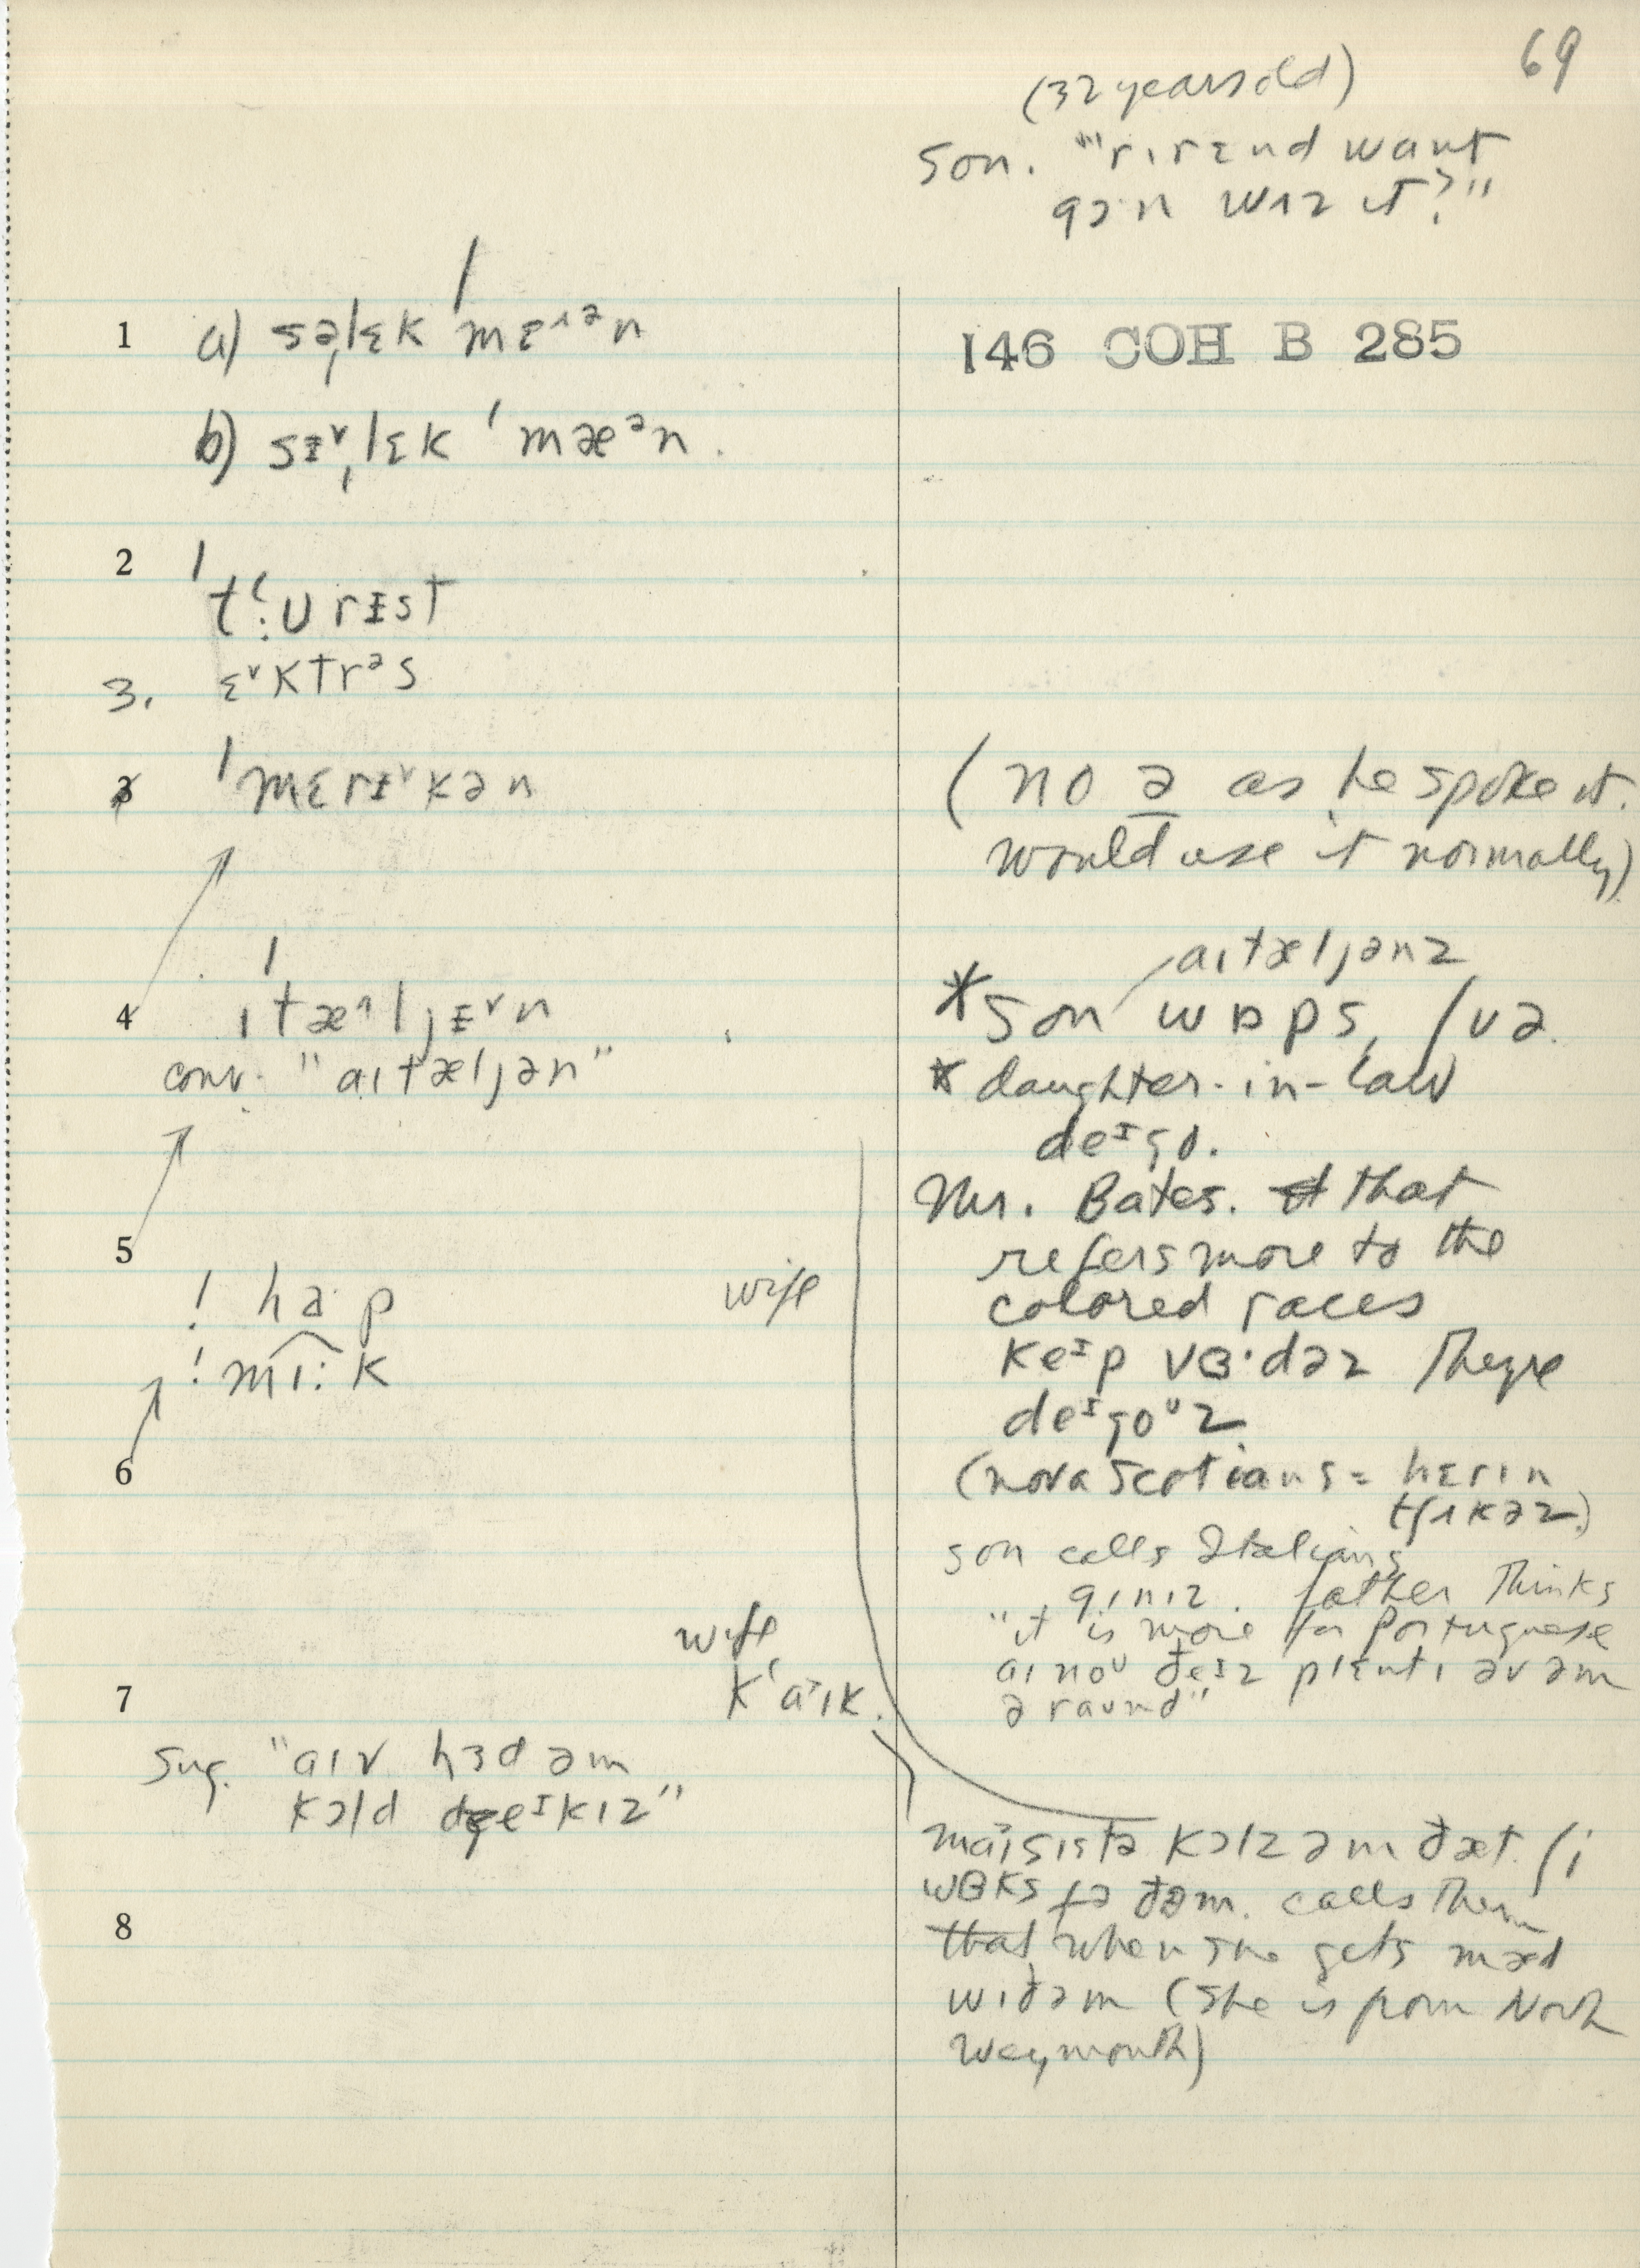 69
(32 years old)
son. "rɪrɛnd want
gɔ·n wɪz it?"
146 COH B 285
1 a) səˌlɛk ˈmɛ˄ən
b) sɪ˅ˌlɛk ˈmæᵊn.
2 ˈtʻ:ʊrɪst
3. ɛ˅ktrᵊs
ˈmɛrɪ˅kən
(no ə as he spoke it.
would use it normally)
4 ɪˈtæ˄ljɪ˅n
conv. "aɪtæljən"
aɪtæljənz
*son wɒps,
* daughter-in-law
deᶦgo.
Mr. Bates. that
refers more to the
colored races
keᶦp vɜ·dəz They're
deᶦgoᶷz
(nova Scotians = hɛrɪn
tʃɪkəz)
son calls Italians
gɪnɪz. father thinks
"it is more for Portuguese
aɪ noᶷ ðeɪz plɛntɪ əv əm
əraʊnd"
5
! ha·p
! mɪ:k
wife
6
wife
kʻaˑɪk.
7
Sug. "aɪv hɜd əm
kɔld eᶦkɪz"
8
maɪ sɪstə kɔlz əm ðæt. ʃi
wɜks fə ðəm. calls them
that when she gets mæd
wɪð əm (she is from North
Weymouth)